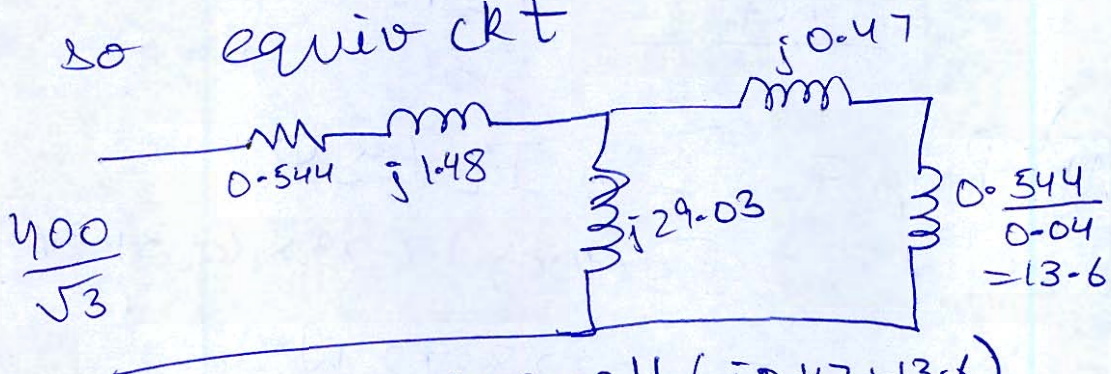 so equiv ckt
j0.47
0.544 j1.48
400/√3
j29.03
0.544/0.04
=13.6
|| (j0.47+13.6)